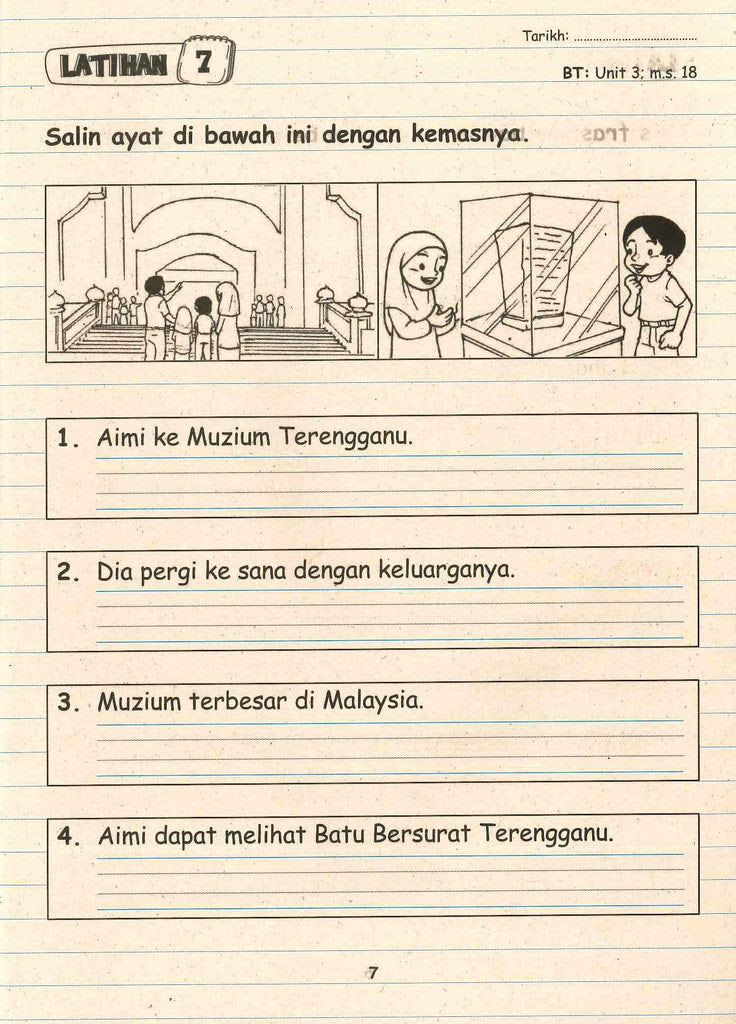 Tarikh: ........................................
LATIHAN 7
BT: Unit 3; m.s. 18
Salin ayat di bawah ini dengan kemasnya.
1. Aimi ke Muzium Terengganu.
2. Dia pergi ke sana dengan keluarganya.
3. Muzium terbesar di Malaysia.
4. Aimi dapat melihat Batu Bersurat Terengganu.
7